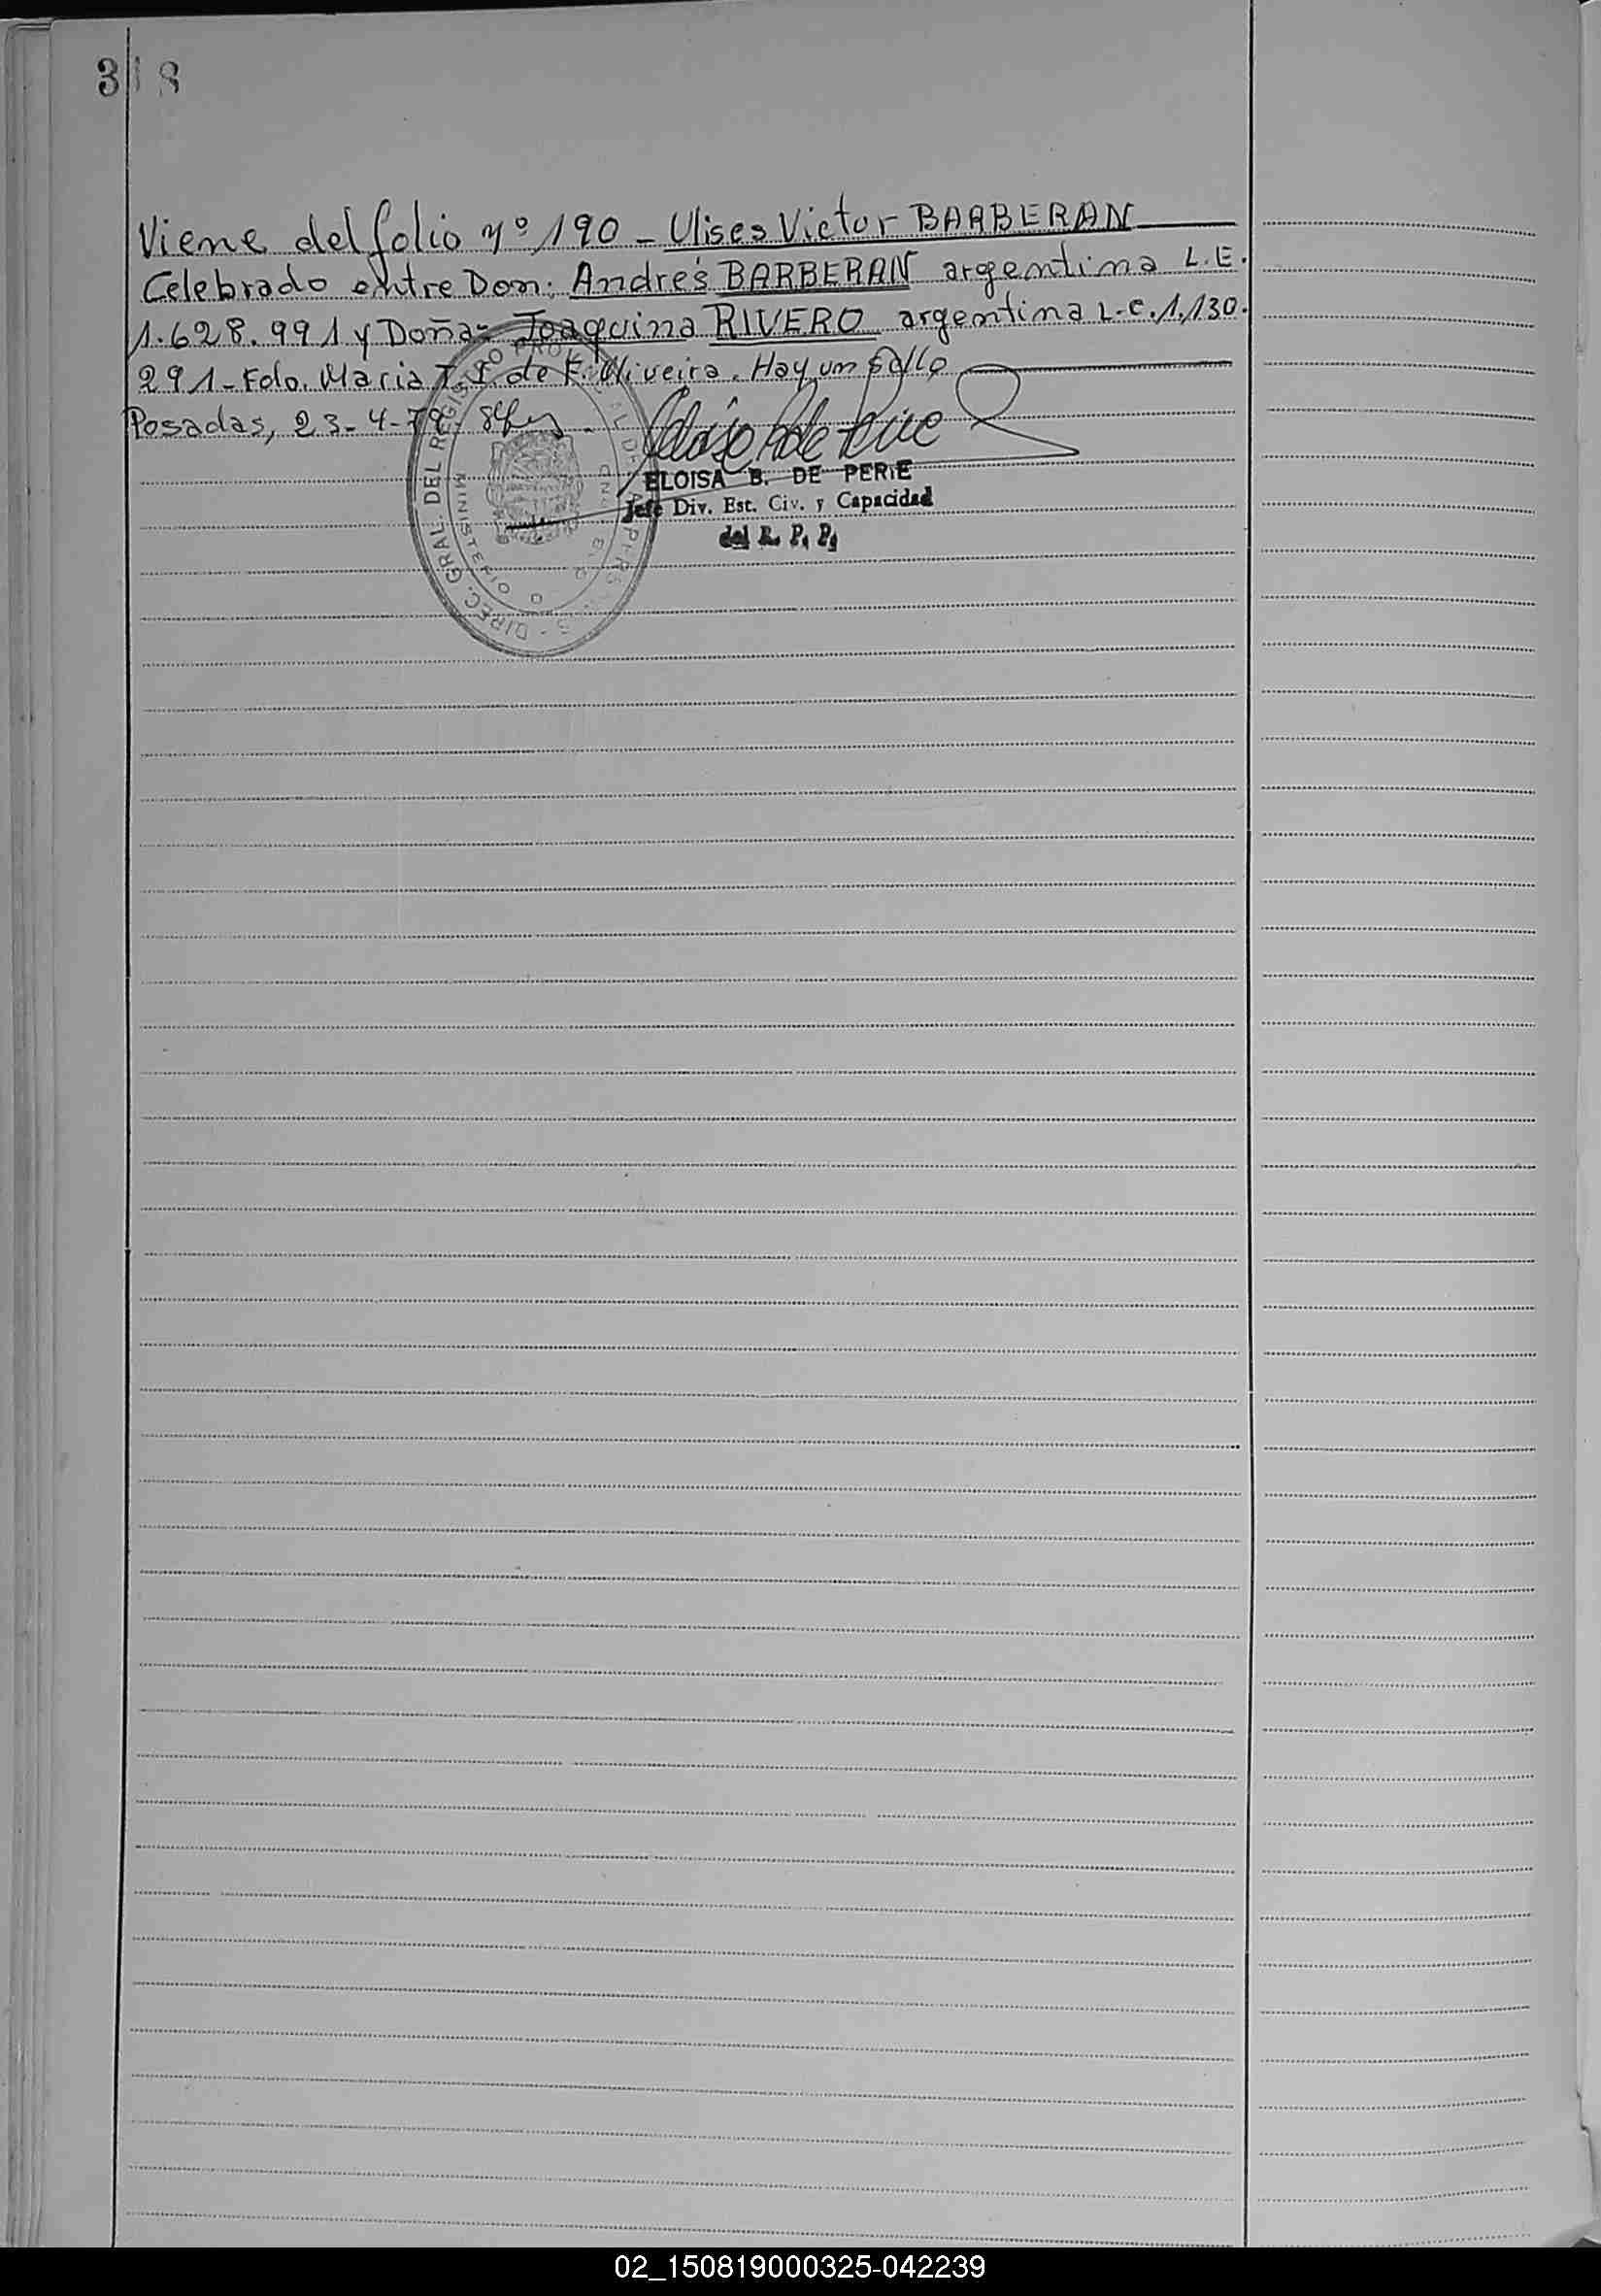 318
Viene del folio nº 190 - Ulises Victor BARBERAN
Celebrado entre Don: Andrés BARBERAN argentino L.E.
1.628.991 y Doña: Joaquina RIVERO argentina L.C. 1.130.
291 - Fdo. Maria T. I. de F. Oliveira. Hay un sello
Posadas, 23-4-79.
ELOISA B. DE PERIE
Jefe Div. Est. Civ. y Capacidad
del R. P. P.
DIREC. GRAL. DEL REGISTRO PROVINCIAL DE
MINISTERIO
02_150819000325-042239